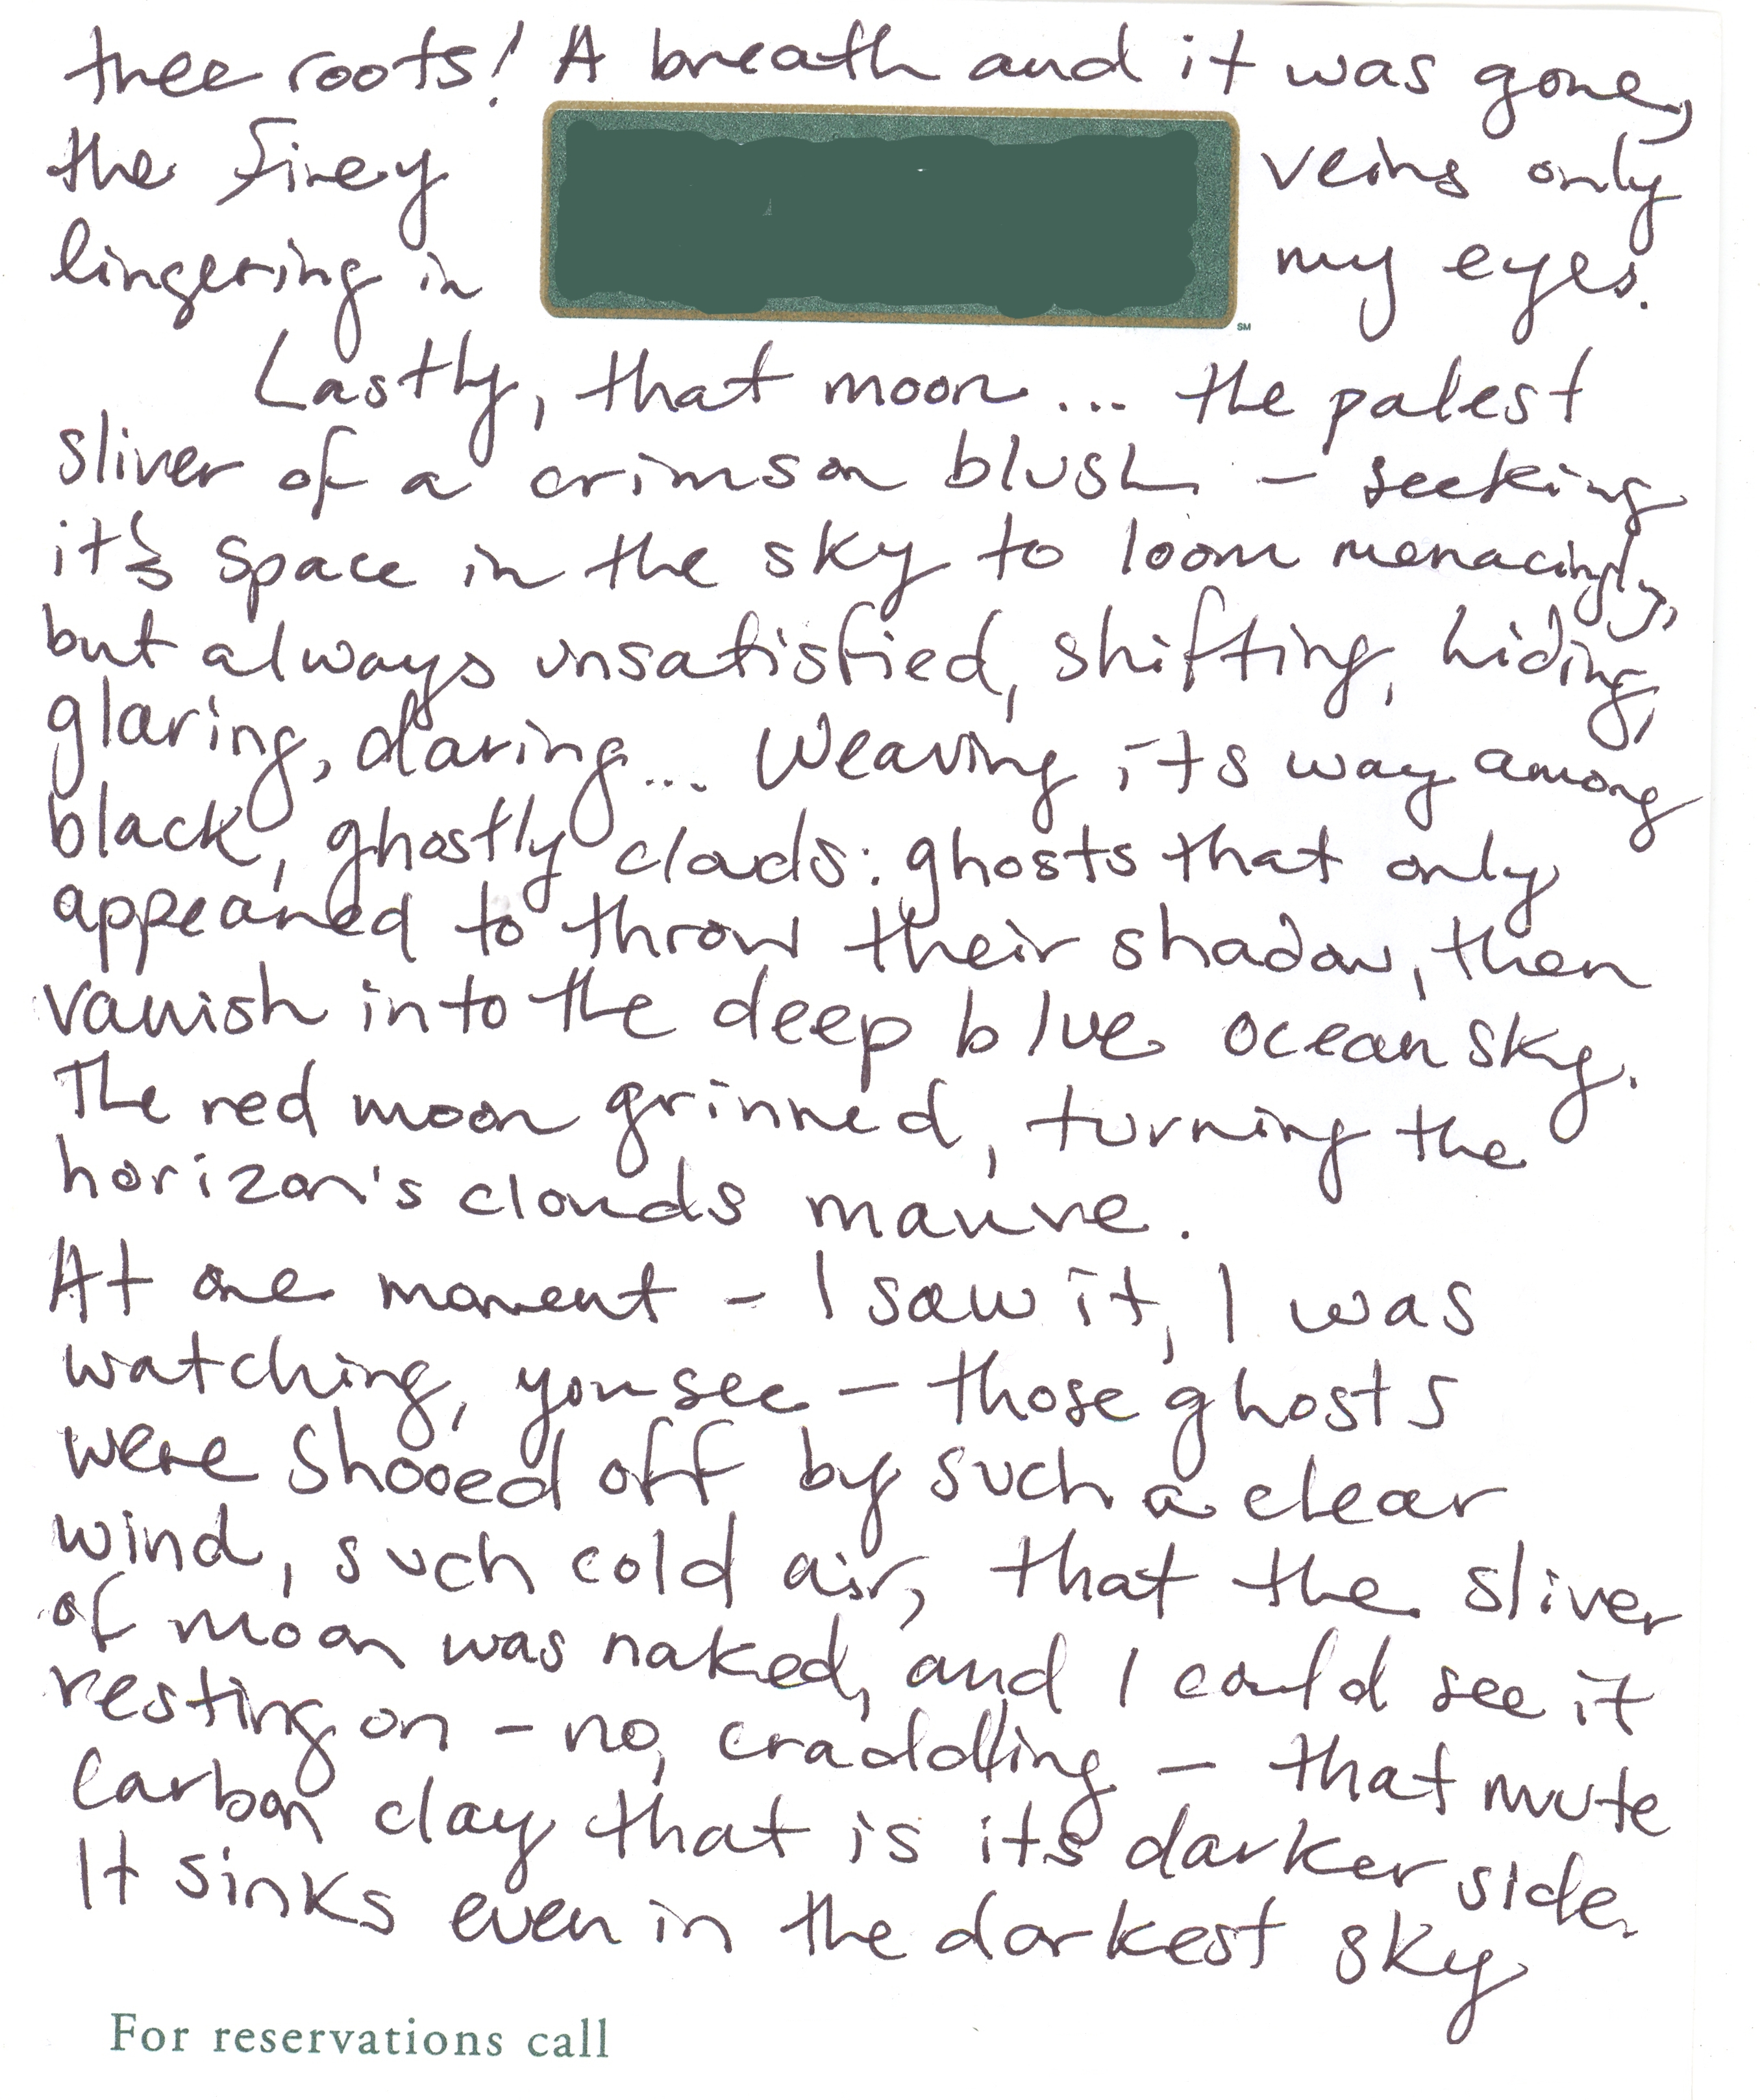 tree roots! A breath and it was gone,
the firey veins only
lingering in my eyes.
SM
Lastly, that moon... the palest
sliver of a crimson blush – seeking
it's space in the sky to loom menacingly,
but always unsatisfied, shifting, hiding,
glaring, daring... Weaving its way among
black, ghostly clouds: ghosts that only
appeared to throw their shadow, then
vanish into the deep blue ocean sky.
The red moon grinned, turning the
horizon's clouds mauve.
At one moment – I saw it, I was
watching, you see – those ghosts
were shooed off by such a clear
wind, such cold air, that the sliver
of moon was naked, and I could see it
resting on – no, craddling – that mute
carbon clay that is its darker side.
It sinks even in the darkest sky
For reservations call